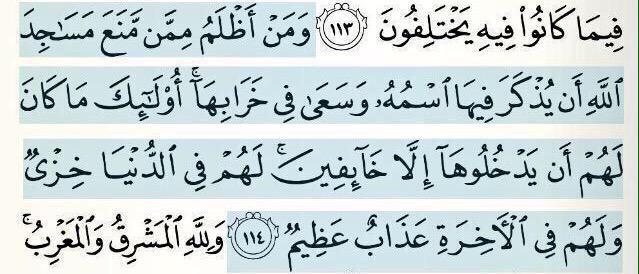 فِيمَا كَانُوا۟ فِيهِ يَخْتَلِفُونَ ١١٣ وَمَنْ أَظْلَمُ مِمَّن مَّنَعَ مَسَـٰجِدَ
ٱللَّهِ أَن يُذْكَرَ فِيهَا ٱسْمُهُۥ وَسَعَىٰ فِى خَرَابِهَآ ۚ أُو۟لَـٰٓئِكَ مَا كَانَ
لَهُمْ أَن يَدْخُلُوهَآ إِلَّا خَآئِفِينَ ۚ لَهُمْ فِى ٱلدُّنْيَا خِزْىٌ
وَلَهُمْ فِى ٱلْـَٔاخِرَةِ عَذَابٌ عَظِيمٌ ١١٤ وَلِلَّهِ ٱلْمَشْرِقُ وَٱلْمَغْرِبُ ۚ